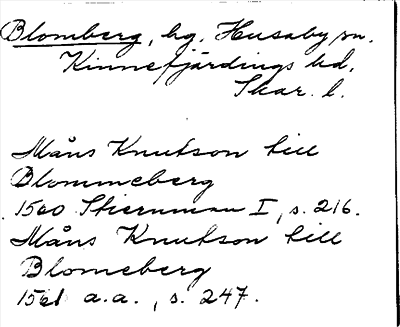 Blomberg, hg, Husaby sn.
Kinnefjärdings hd.
Skar. l.
Måns Knutson till
Blommeberg
1560 Stiernman I, s. 216.
Måns Knutson till
Blomeberg
1561 a.a., s. 247.